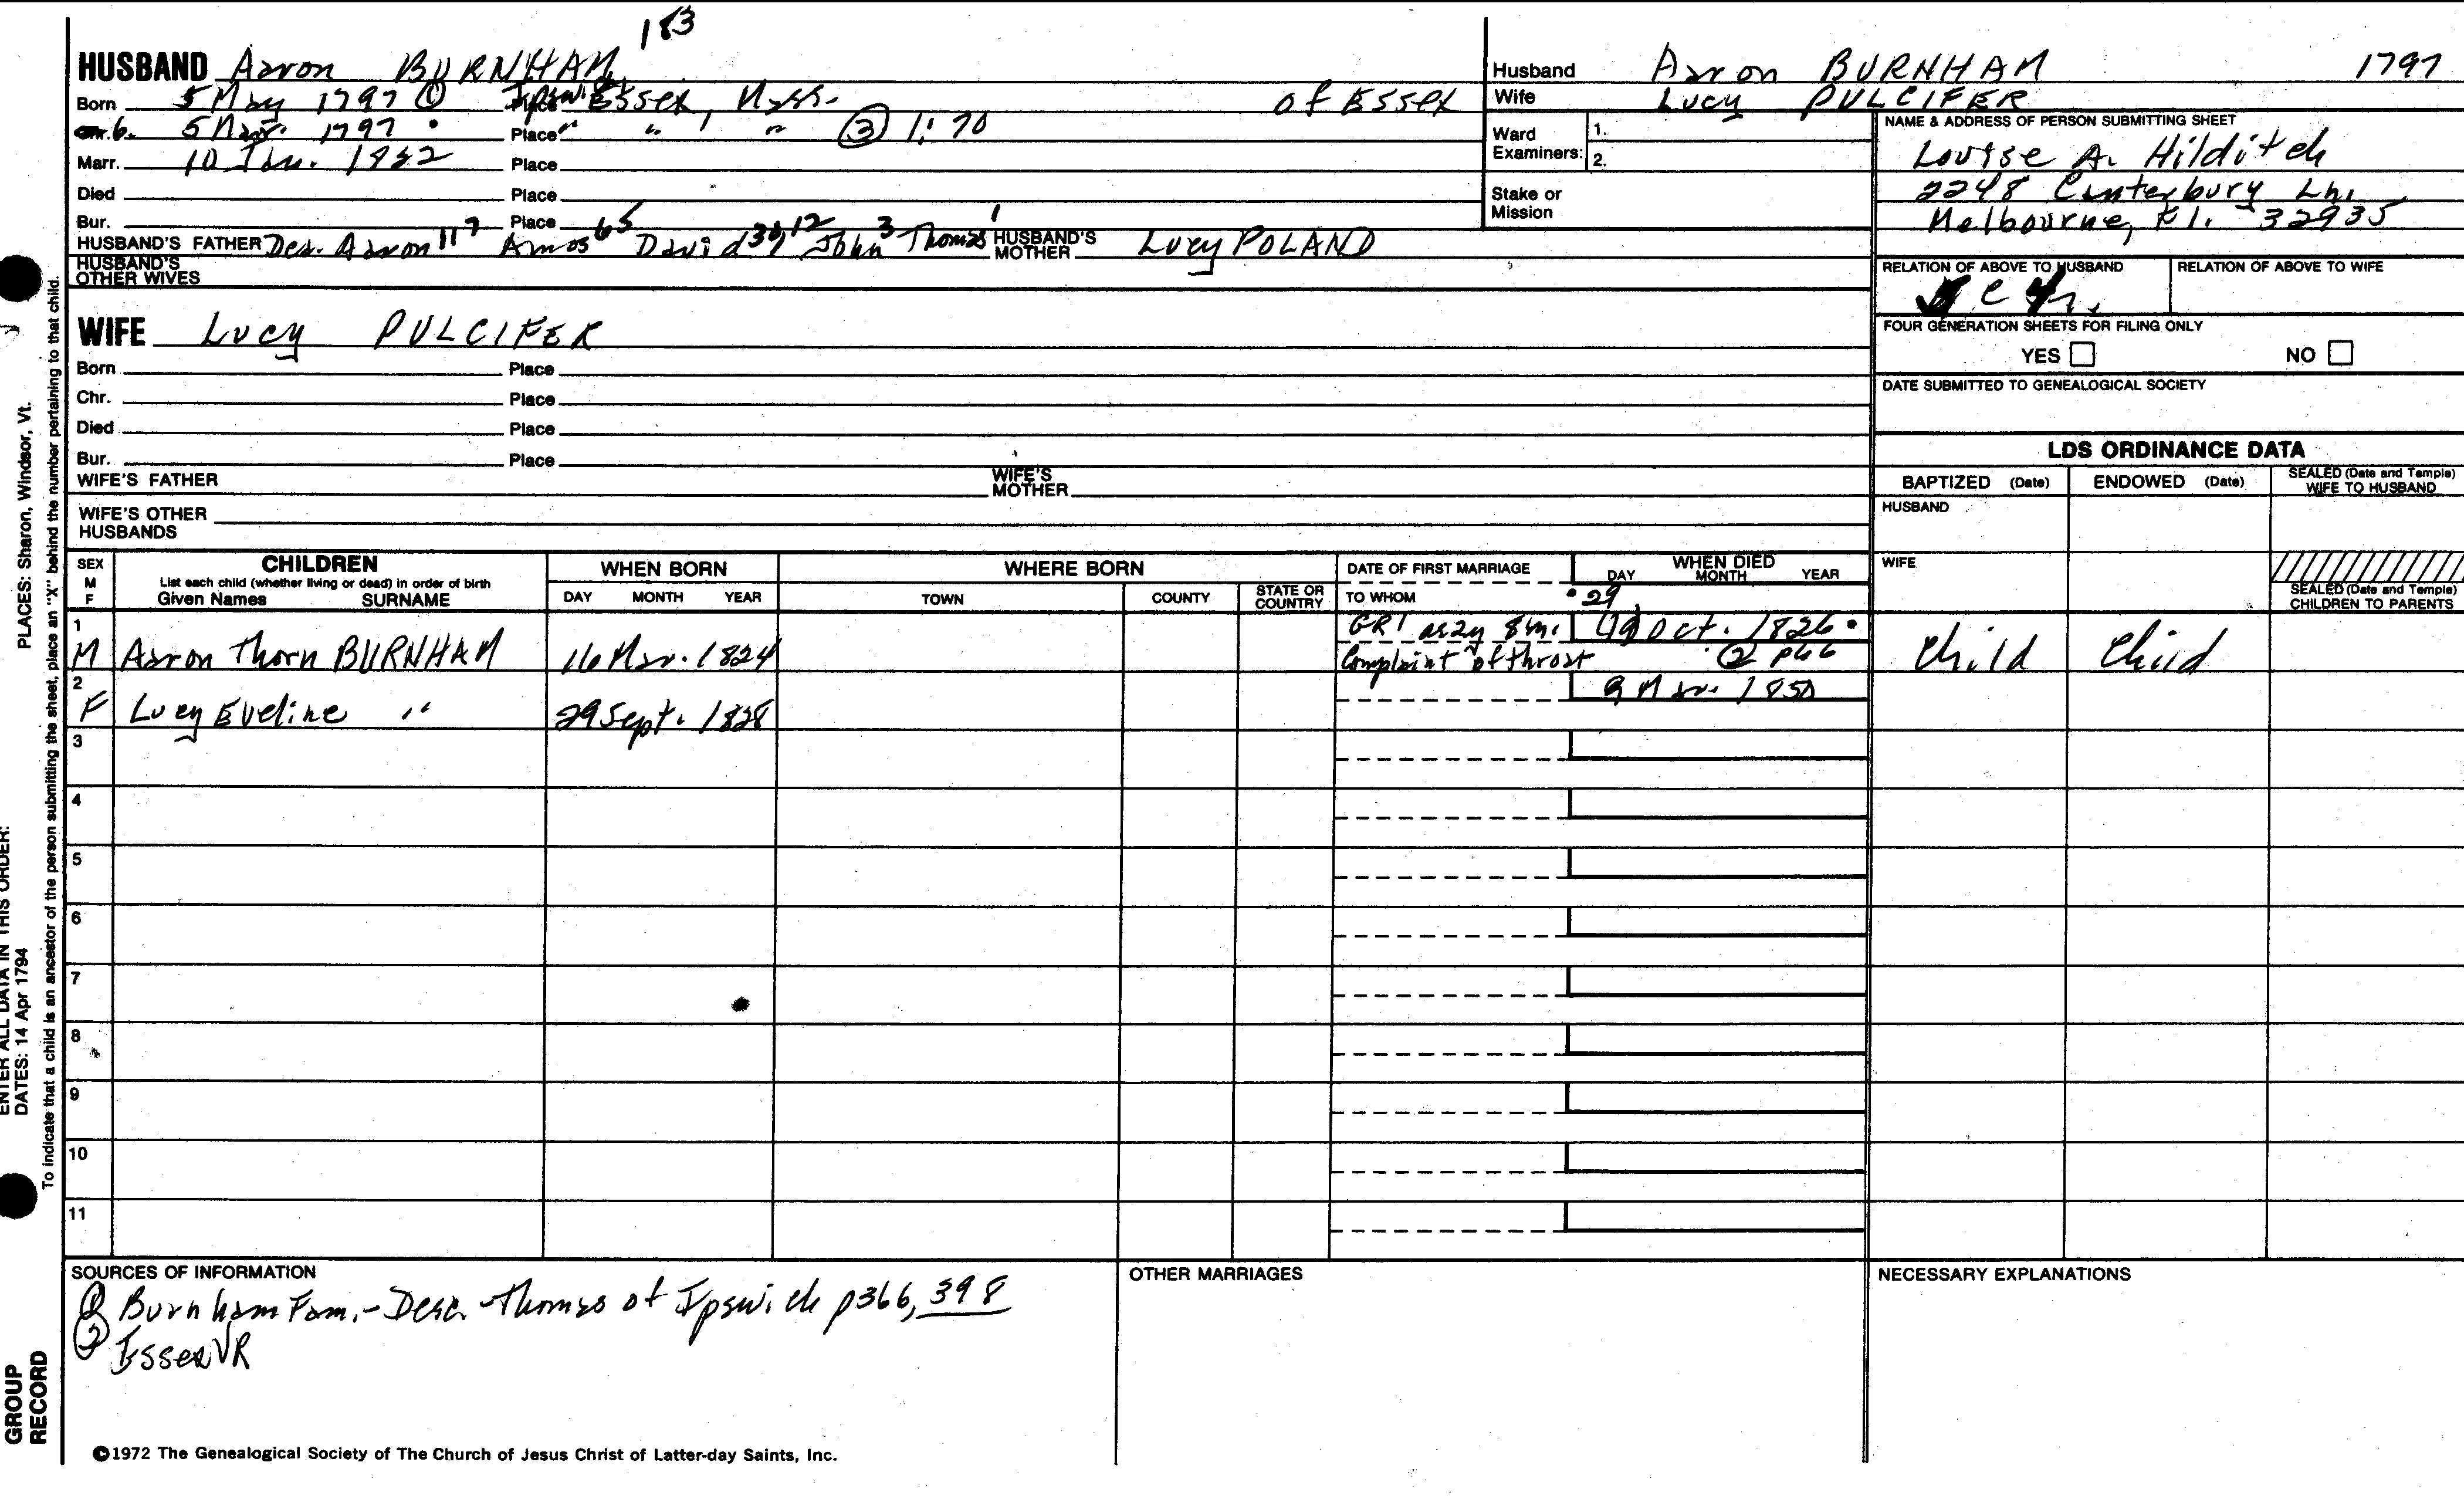 183
HUSBAND Aaron BURNHAM
Born 5 May 1797 ① Place Ipswich Essex, Mass. of Essex
Chr. b. 5 Mar. 1797 Place " " " ③ 1:70
Marr. 10 Jan. 1822 Place
Died Place
Bur. Place
HUSBAND'S FATHER Dea. Aaron 117 Amos 65 David 39, 12 John 3 Thomas 1 HUSBAND'S MOTHER Lucy POLAND
HUSBAND'S OTHER WIVES
WIFE Lucy PULCIFER
Born Place
Chr. Place
Died Place
Bur. Place
WIFE'S FATHER WIFE'S MOTHER
WIFE'S OTHER HUSBANDS
Husband Aaron BURNHAM 1797
Wife Lucy PULCIFER
Ward Examiners: 1.
2.
Stake or Mission
NAME & ADDRESS OF PERSON SUBMITTING SHEET
Louise A. Hilditch
2248 Canterbury Ln.
Melbourne, Fl. 32935
RELATION OF ABOVE TO HUSBAND RELATION OF ABOVE TO WIFE
FOUR GENERATION SHEETS FOR FILING ONLY
YES NO
DATE SUBMITTED TO GENEALOGICAL SOCIETY
LDS ORDINANCE DATA
BAPTIZED (Date) ENDOWED (Date) SEALED (Date and Temple) WIFE TO HUSBAND
HUSBAND
WIFE
SEALED (Date and Temple) CHILDREN TO PARENTS
SEX M F CHILDREN WHEN BORN WHERE BORN DATE OF FIRST MARRIAGE WHEN DIED
List each child (whether living or dead) in order of birth
Given Names SURNAME DAY MONTH YEAR TOWN COUNTY STATE OR COUNTRY TO WHOM DAY MONTH YEAR
29
1 GR1 as 2y 8m. 19 Oct. 1826
M Aaron Thorn BURNHAM 16 Mar. 1824 Complaint of throat ② p66 Child Child
2 9 Mar. 1850
F Lucy Eveline " 29 Sept. 1828
3
4
5
6
7
8
9
10
11
SOURCES OF INFORMATION
① Burnham Fam. - Desc. Thomas of Ipswich p366, 398
② Essex VR
OTHER MARRIAGES
NECESSARY EXPLANATIONS
©1972 The Genealogical Society of The Church of Jesus Christ of Latter-day Saints, Inc.
GROUP RECORD
ENTER ALL DATA IN THIS ORDER:
DATES: 14 Apr 1794
PLACES: Sharon, Windsor, Vt.
To indicate that a child is an ancestor of the person submitting the sheet, place an "X" behind the number pertaining to that child.